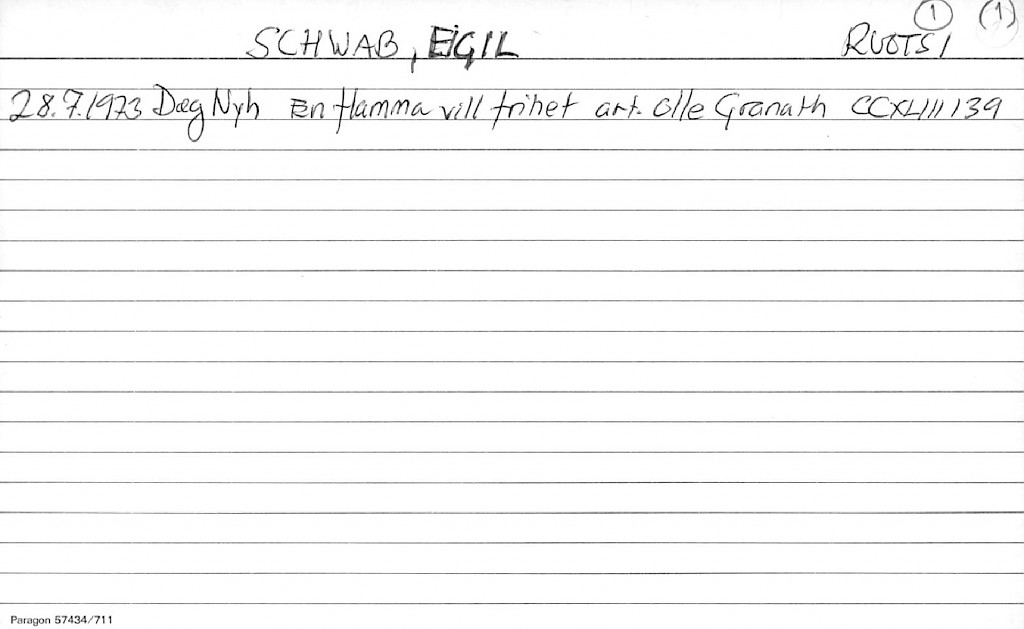 SCHWAB, EIGIL RUOTSI 1 (1)
28.7.1973 Dag Nyh En flamma vill frihet art. Olle Granath CCXLIII 139
Paragon 57434/711